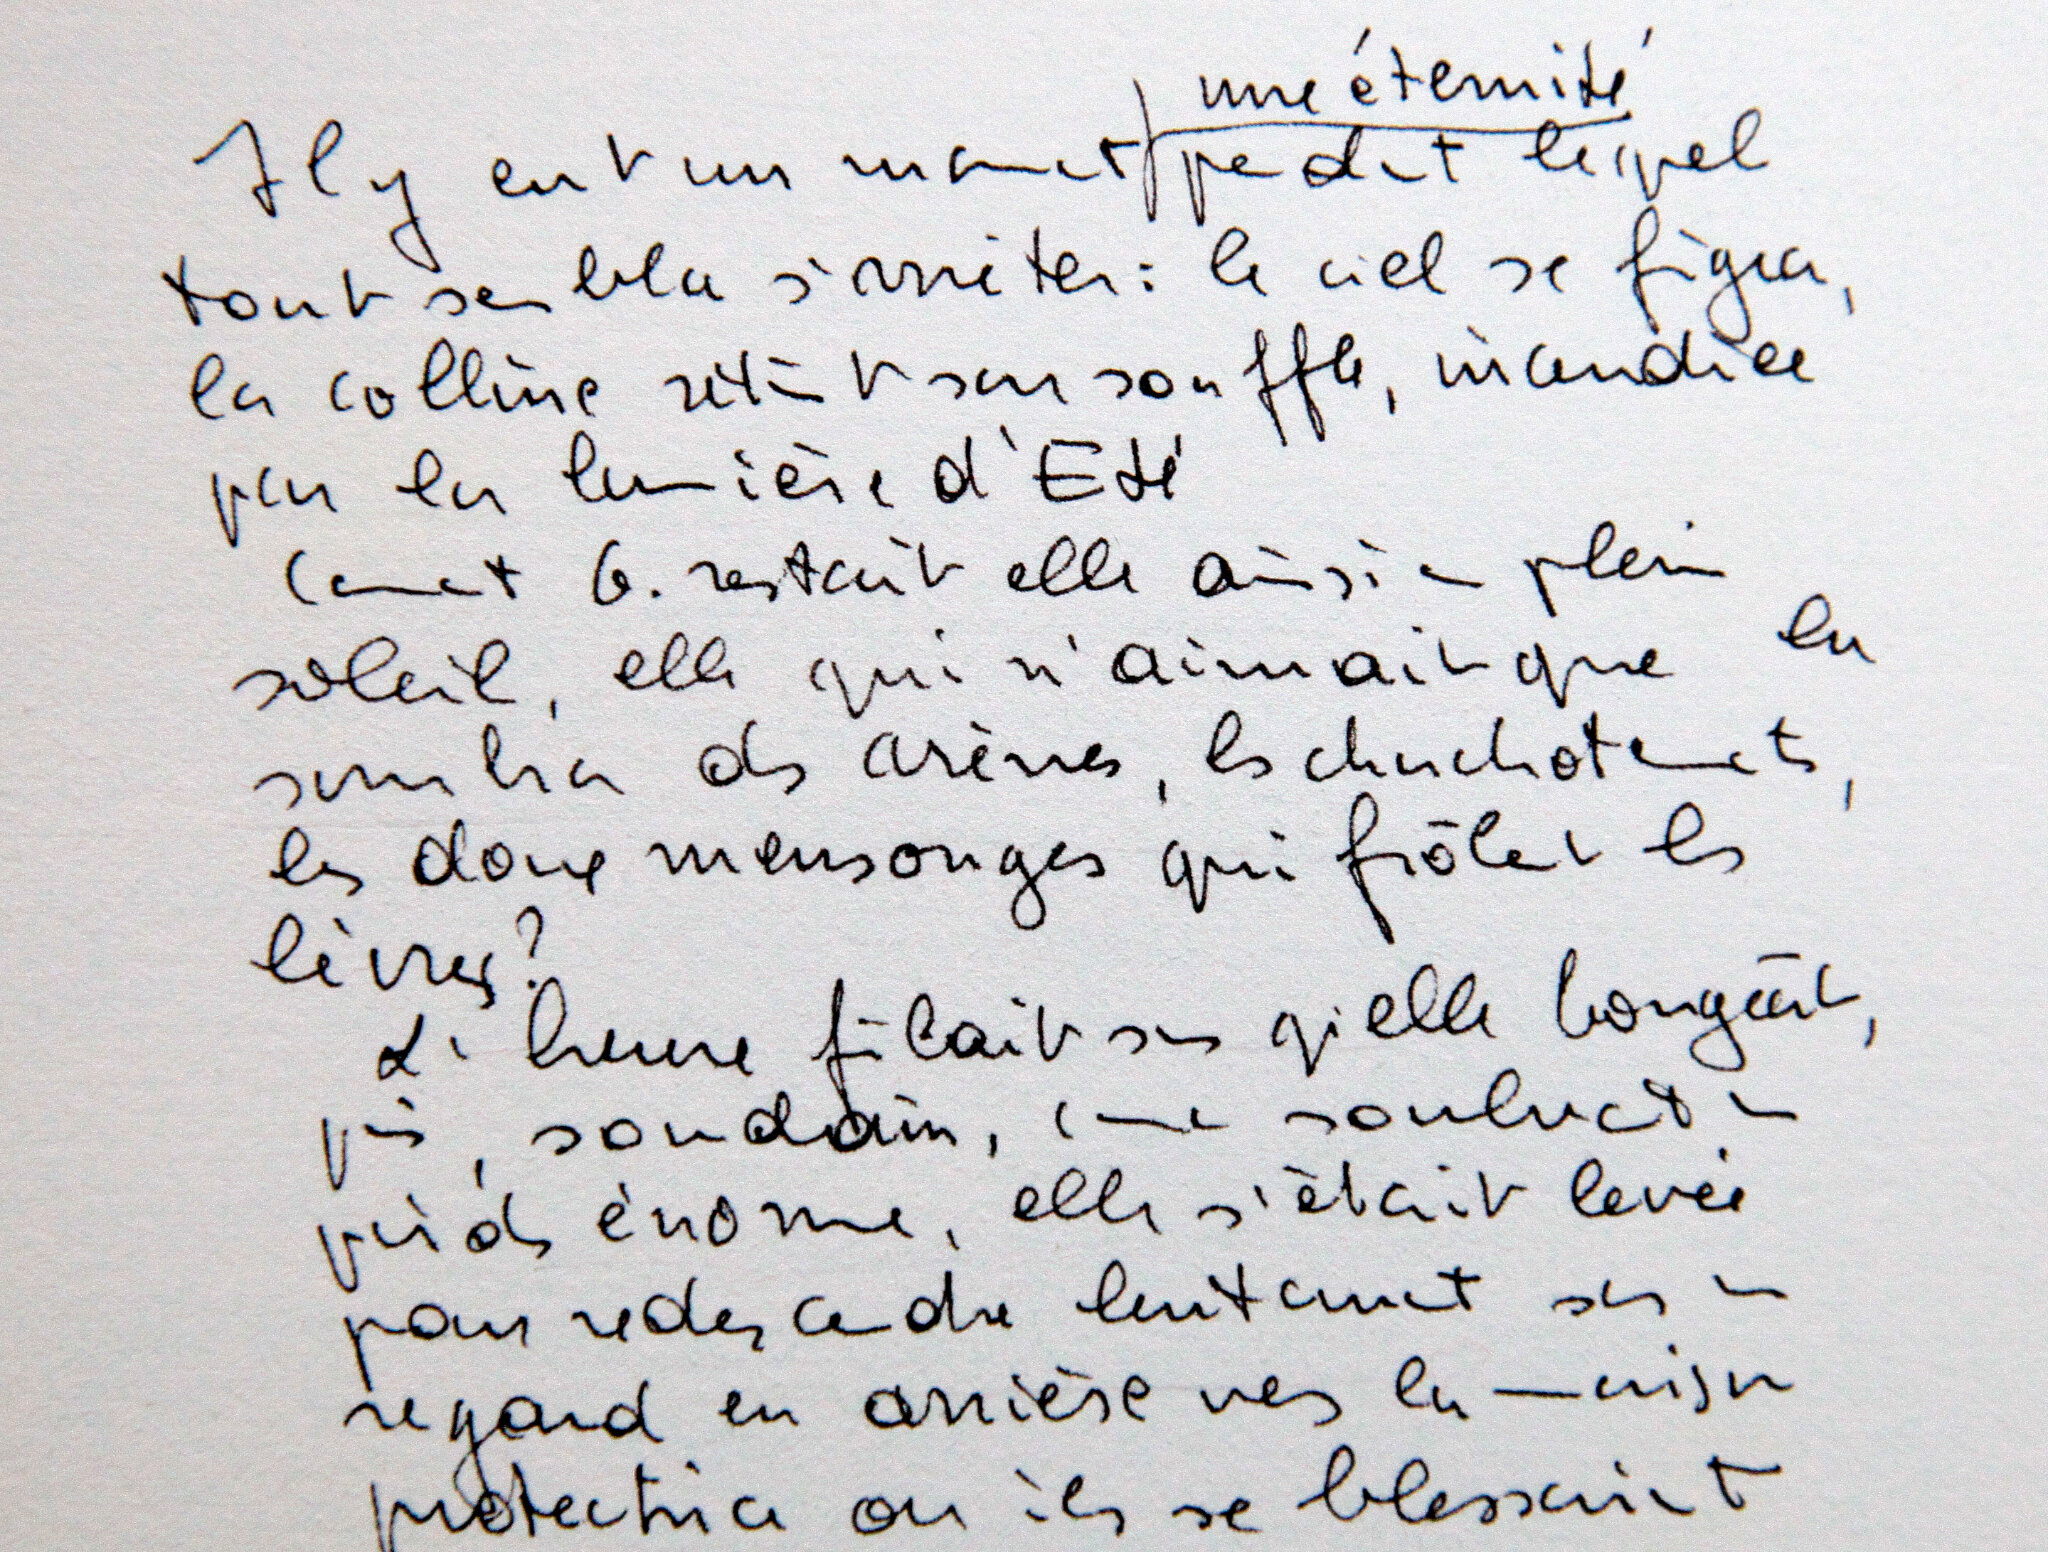 une éternité
Il y eut un moment pendant lequel
tout sembla s'arrêter : le ciel se figea,
la colline retint son souffle, incendiée
par la lumière d'Eté
Comment G. restait elle ainsi en plein
soleil, elle qui n'aimait que la
sombra des arènes, les chuchotements,
les doux mensonges qui frôlent les
lèvres ?
L'heure filait sans qu'elle bougeât,
puis, soudain, comme soulevant un
poids énorme, elle s'était levée
pour redescendre lentement sans un
regard en arrière vers la maison
protectrice où ils se blessaient